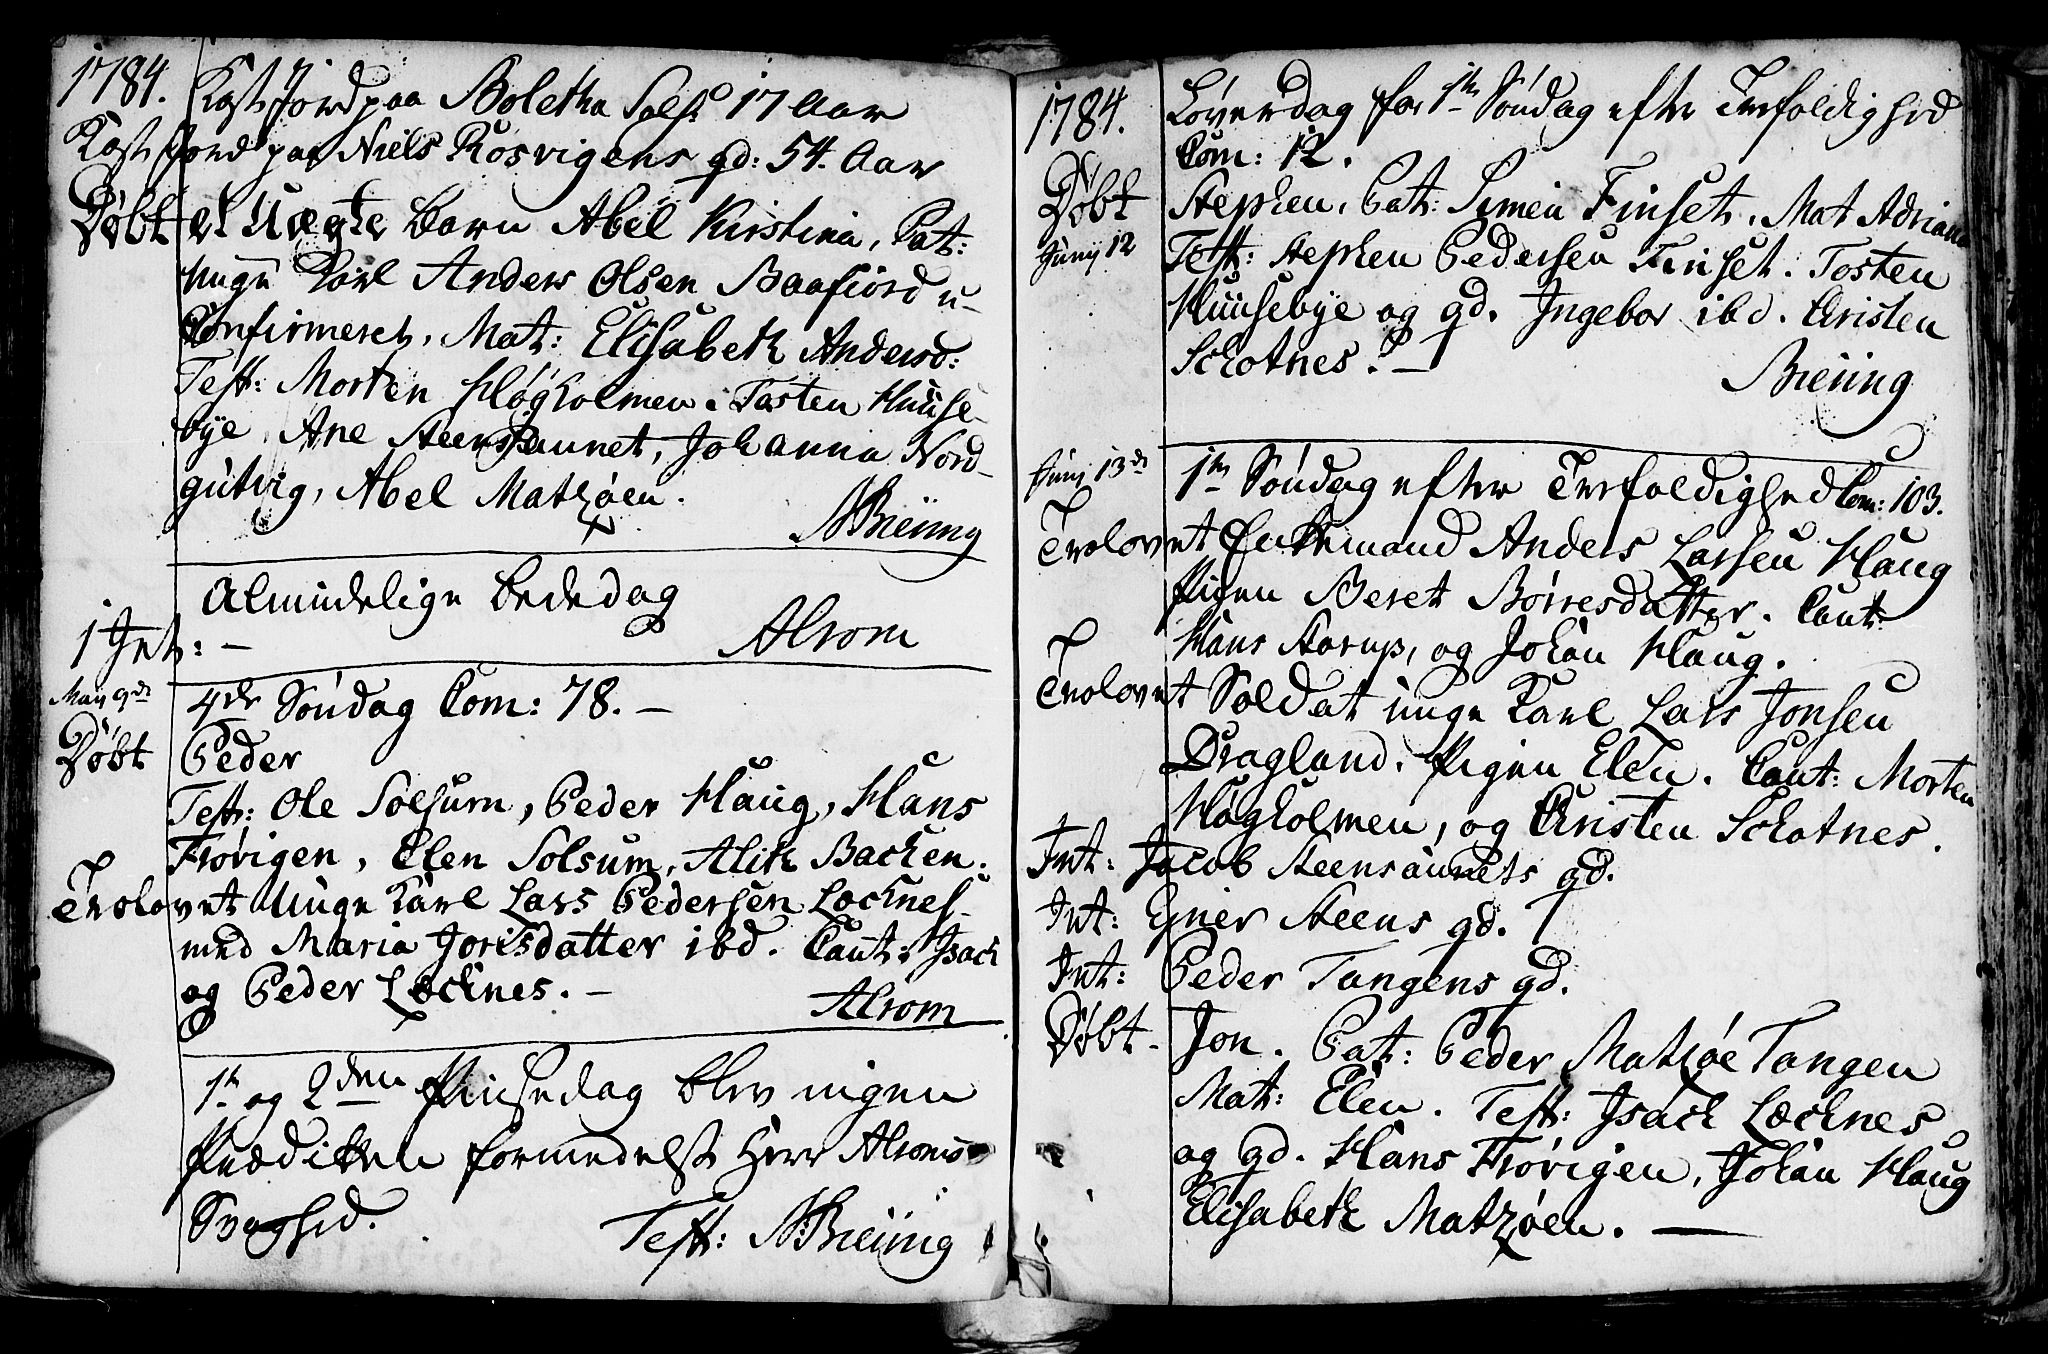 1784. Kast Jord paa Boletha Sols: 17 Aar
Kast Jord paa Niels Rosvigens gd: 54. Aar
Døbt et Uægte Barn Abel Kirstina, Pat:
unge Karl Anders Olsen Baafiord u-
Confirmeret, Mat: Elisabeth Andersd:
Test: Morten Høgholmen, Tosten Huuse-
bye, Ane Steensaunet, Johanna Nord-
gutvig, Abel Matzøen.
N Breüng
Almindelige Bededag
1 Int: -
Alrom
May 9de 4de Søndag Com: 78. -
Døbt Peder
Test: Ole Solsum, Peder Haug, Hans
Frøvigen, Elen Solsum, Alith Backen.
Trolovet Unge Karl Lars Pedersen Lecknes-
med Maria Jorisdatter ibd. Caut: Isach
og Peder Lecknes. -
Alrom
1te og 2den Pinsedag blev ingen
Prædiken formedelst Herr Alroms
Svaghed.
Test: N Breüng
1784. Løverdag for 1te Søndag efter Trefoldighed
Com: 12.
Døbt Stephen, Pat: Simen Finset, Mat Adriana
Juny 12 Test: Stephen Pedersen Finset. Tosten
Huusebye og gd. Ingebor ibd. Christen
Schotnes. -
Breüng
Juny 13de 1te Søndag efter Trefoldighed Com: 103.
Trolovet Enkemand Anders Larsen Haug
Pigen Beret Børresdatter. Caut:
Hans Aarup, og Johan Haug.
Trolovet Soldat unge Karl Lars Jonsen
Dragland. Pigen Elen. Caut: Morten
Høgholmen, og Christen Schotnes.
Int: Jacob Steensaunets gd.
Int: Ejner Steens gd.
Int: Peder Tangens gd.
Døbt - Jon. Pat: Peder Matzøe Tangen
Mat: Elen. Test: Isach Lecknes
og gd. Hans Frøvigen, Johan Haug
Elisabeth Matzøen. -